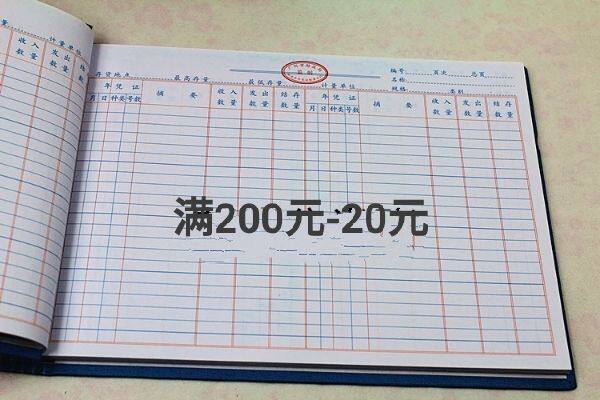 收入 发出 结存
数量 数量 数量
计量单位
编号 页次 总页
名称
存货地点 最高存量 最低存量 计量单位 规格 类别
年 凭证 摘要 收入 发出 结存 年 凭证 摘要 收入 发出 结存
月 日 种类 号数 数量 数量 数量 月 日 种类 号数 数量 数量 数量
满200元-20元